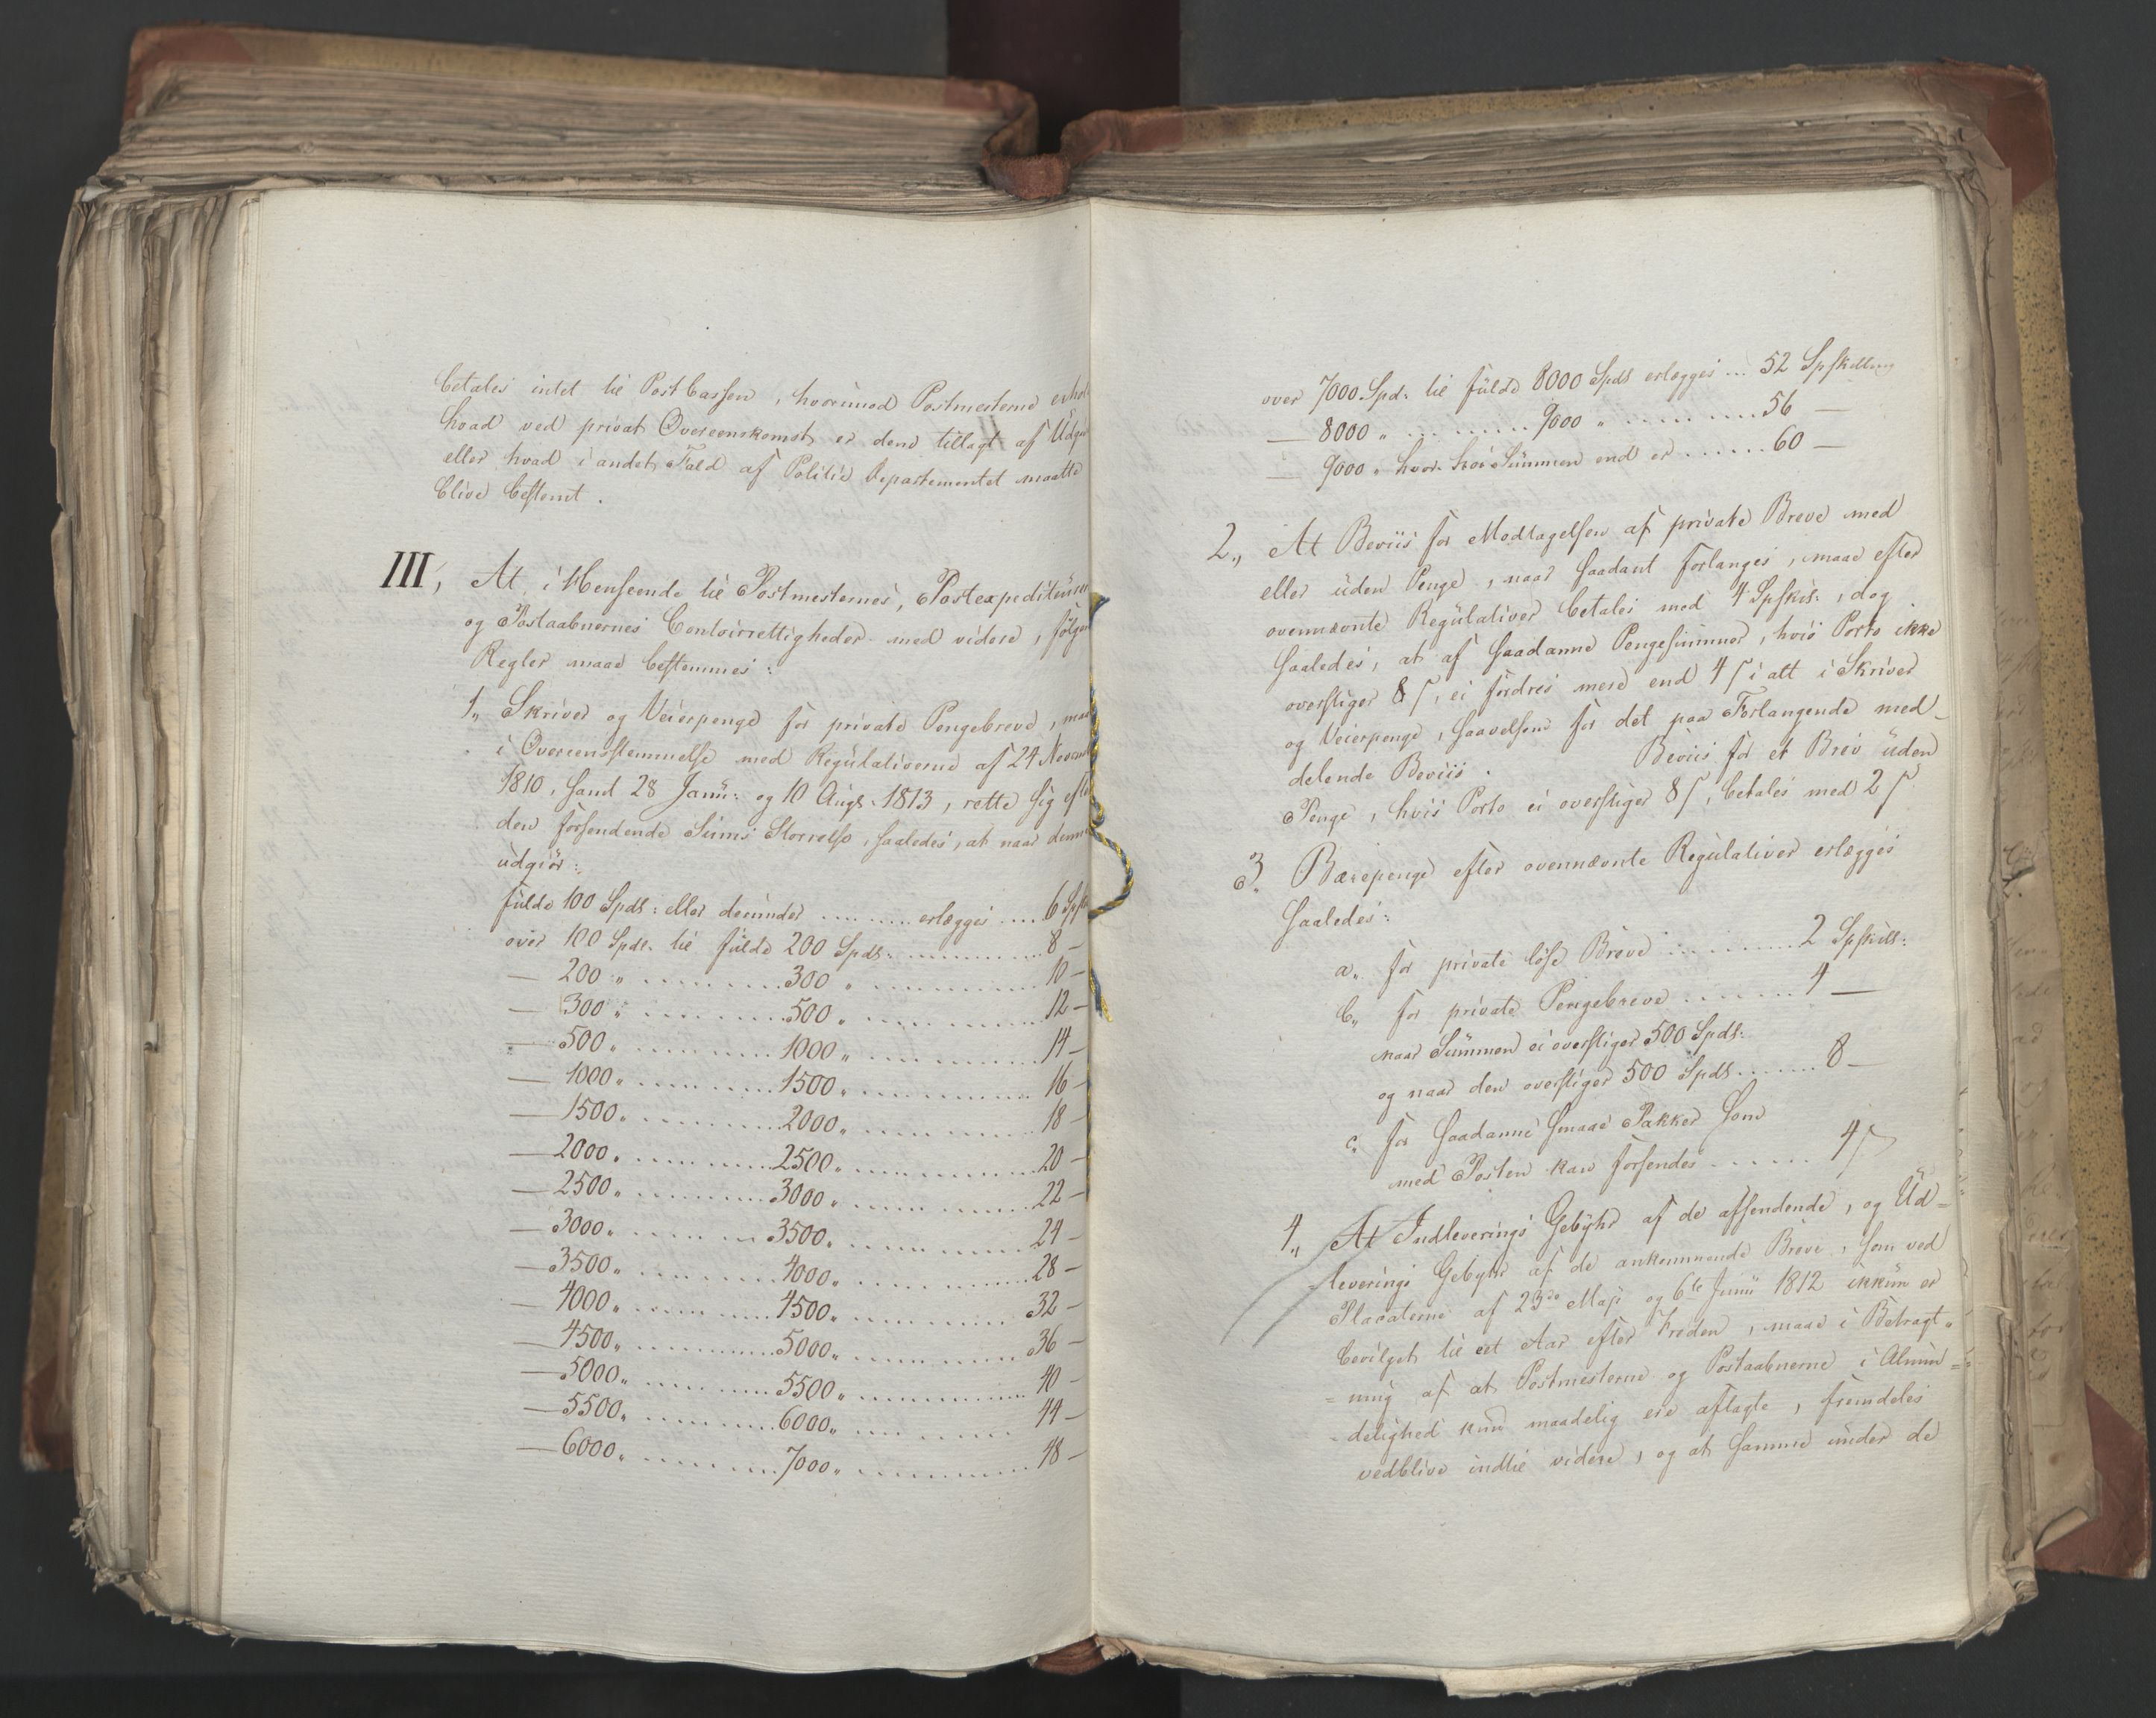 betales intet til PostCassen, hvorimod Postmesterne erhol
hvad ved privat Overeenskomst er dem tillagt af Udgi
eller hvad i andet Fald af Politie Departementet maatte
blive bestemt.
III, At i Henseende til Postmesternes, Postexpediteurer
og Postaabnernes Contoirrettigheder med videre, følgen
Regler maae bestemmes:
1,, Skriver og Veierpenge for private Pengebreve, maa
i Overeensstemmelse med Regulativerne af 24 Novemb
1810, samt 28 Janu: og 10 Augs. 1813, rette sig efte
den forsendende Sums Storrelse, saaledes, at naar denne
udgiør:
fulde 100 Spds: eller derunder ........ erlægges .... 6 Spsk
over 100 Spds. til fulde 200 Spds: ............ 8 -
— 200 „ ......... 300 „ ............ 10 -
— 300 „ ......... 500 „ ............ 12 -
— 500 „ ......... 1000 „ ............ 14 -
— 1000 „ ......... 1500 „ ............ 16 -
— 1500 „ ......... 2000 „ ............ 18 -
— 2000 „ ......... 2500 „ ............ 20 -
— 2500 „ ......... 3000 „ ............ 22 -
— 3000 „ ......... 3500 „ ............ 24 -
— 3500 „ ......... 4000 „ ............ 28 -
— 4000 „ ......... 4500 „ ............ 32 -
— 4500 „ ......... 5000 „ ............ 36 -
— 5000 „ ......... 5500 „ ............ 40 -
— 5500 „ ......... 6000 „ ............ 44 -
— 6000 „ ......... 7000 „ ............ 48 -
over 7000 Spd: til fulde 8000 Spds erlægges ... 52 Spskilling
— 8000 „ ......... 9000 „ ......... 56 —
— 9000 „ hvor stor Summen end er ...... 60 —
2,, At Beviis for Modtagelsen af private Breve med
eller uden Penge, naar saadant forlanges, maae efter
ovennævnte Regulativer betales med 4 Spskil:, dog
saaledes, at af saadanne Pengesummer, hvis Porto ikke
overstiger 8 ʃ, ei fordres mere end 4 ʃ i alt i Skriver
og Veierpenge, saavelsom for det paa Forlangende med-
delende Beviis. Beviis for et Brev uden
Penge, hvis Porto ei overstiger 8 ʃ, betales med 2 ʃ
3,, Bærepenge efter ovennævnte Regulativer erlægges
saaledes:
a,, for private løse Breve ......... 2 Spskill:
b,, for private Pengebreve ........ 4 —
naar Summen ei overstiger 500 Spds:
og naar den overstiger 500 Spds ....... 8 —
c,, for saadanne smaae Pakker som
med Posten kan forsendes ...... 4 ʃ
4,, At Indleverings Gebyhr af de afsendende, og Ud=
=leverings Gebyhr af de ankommende Breve, som ved
Placaterne af 23de Maji og 6te Junii 1812 ikkun er
bevilget til eet Aar efter Freden, maae i Betragt=
=ning af at Postmesterne og Postaabnerne i Almin=
=delighed kun maadelig ere aflagte, fremdeles
vedblive indtil videre, og at samme under de